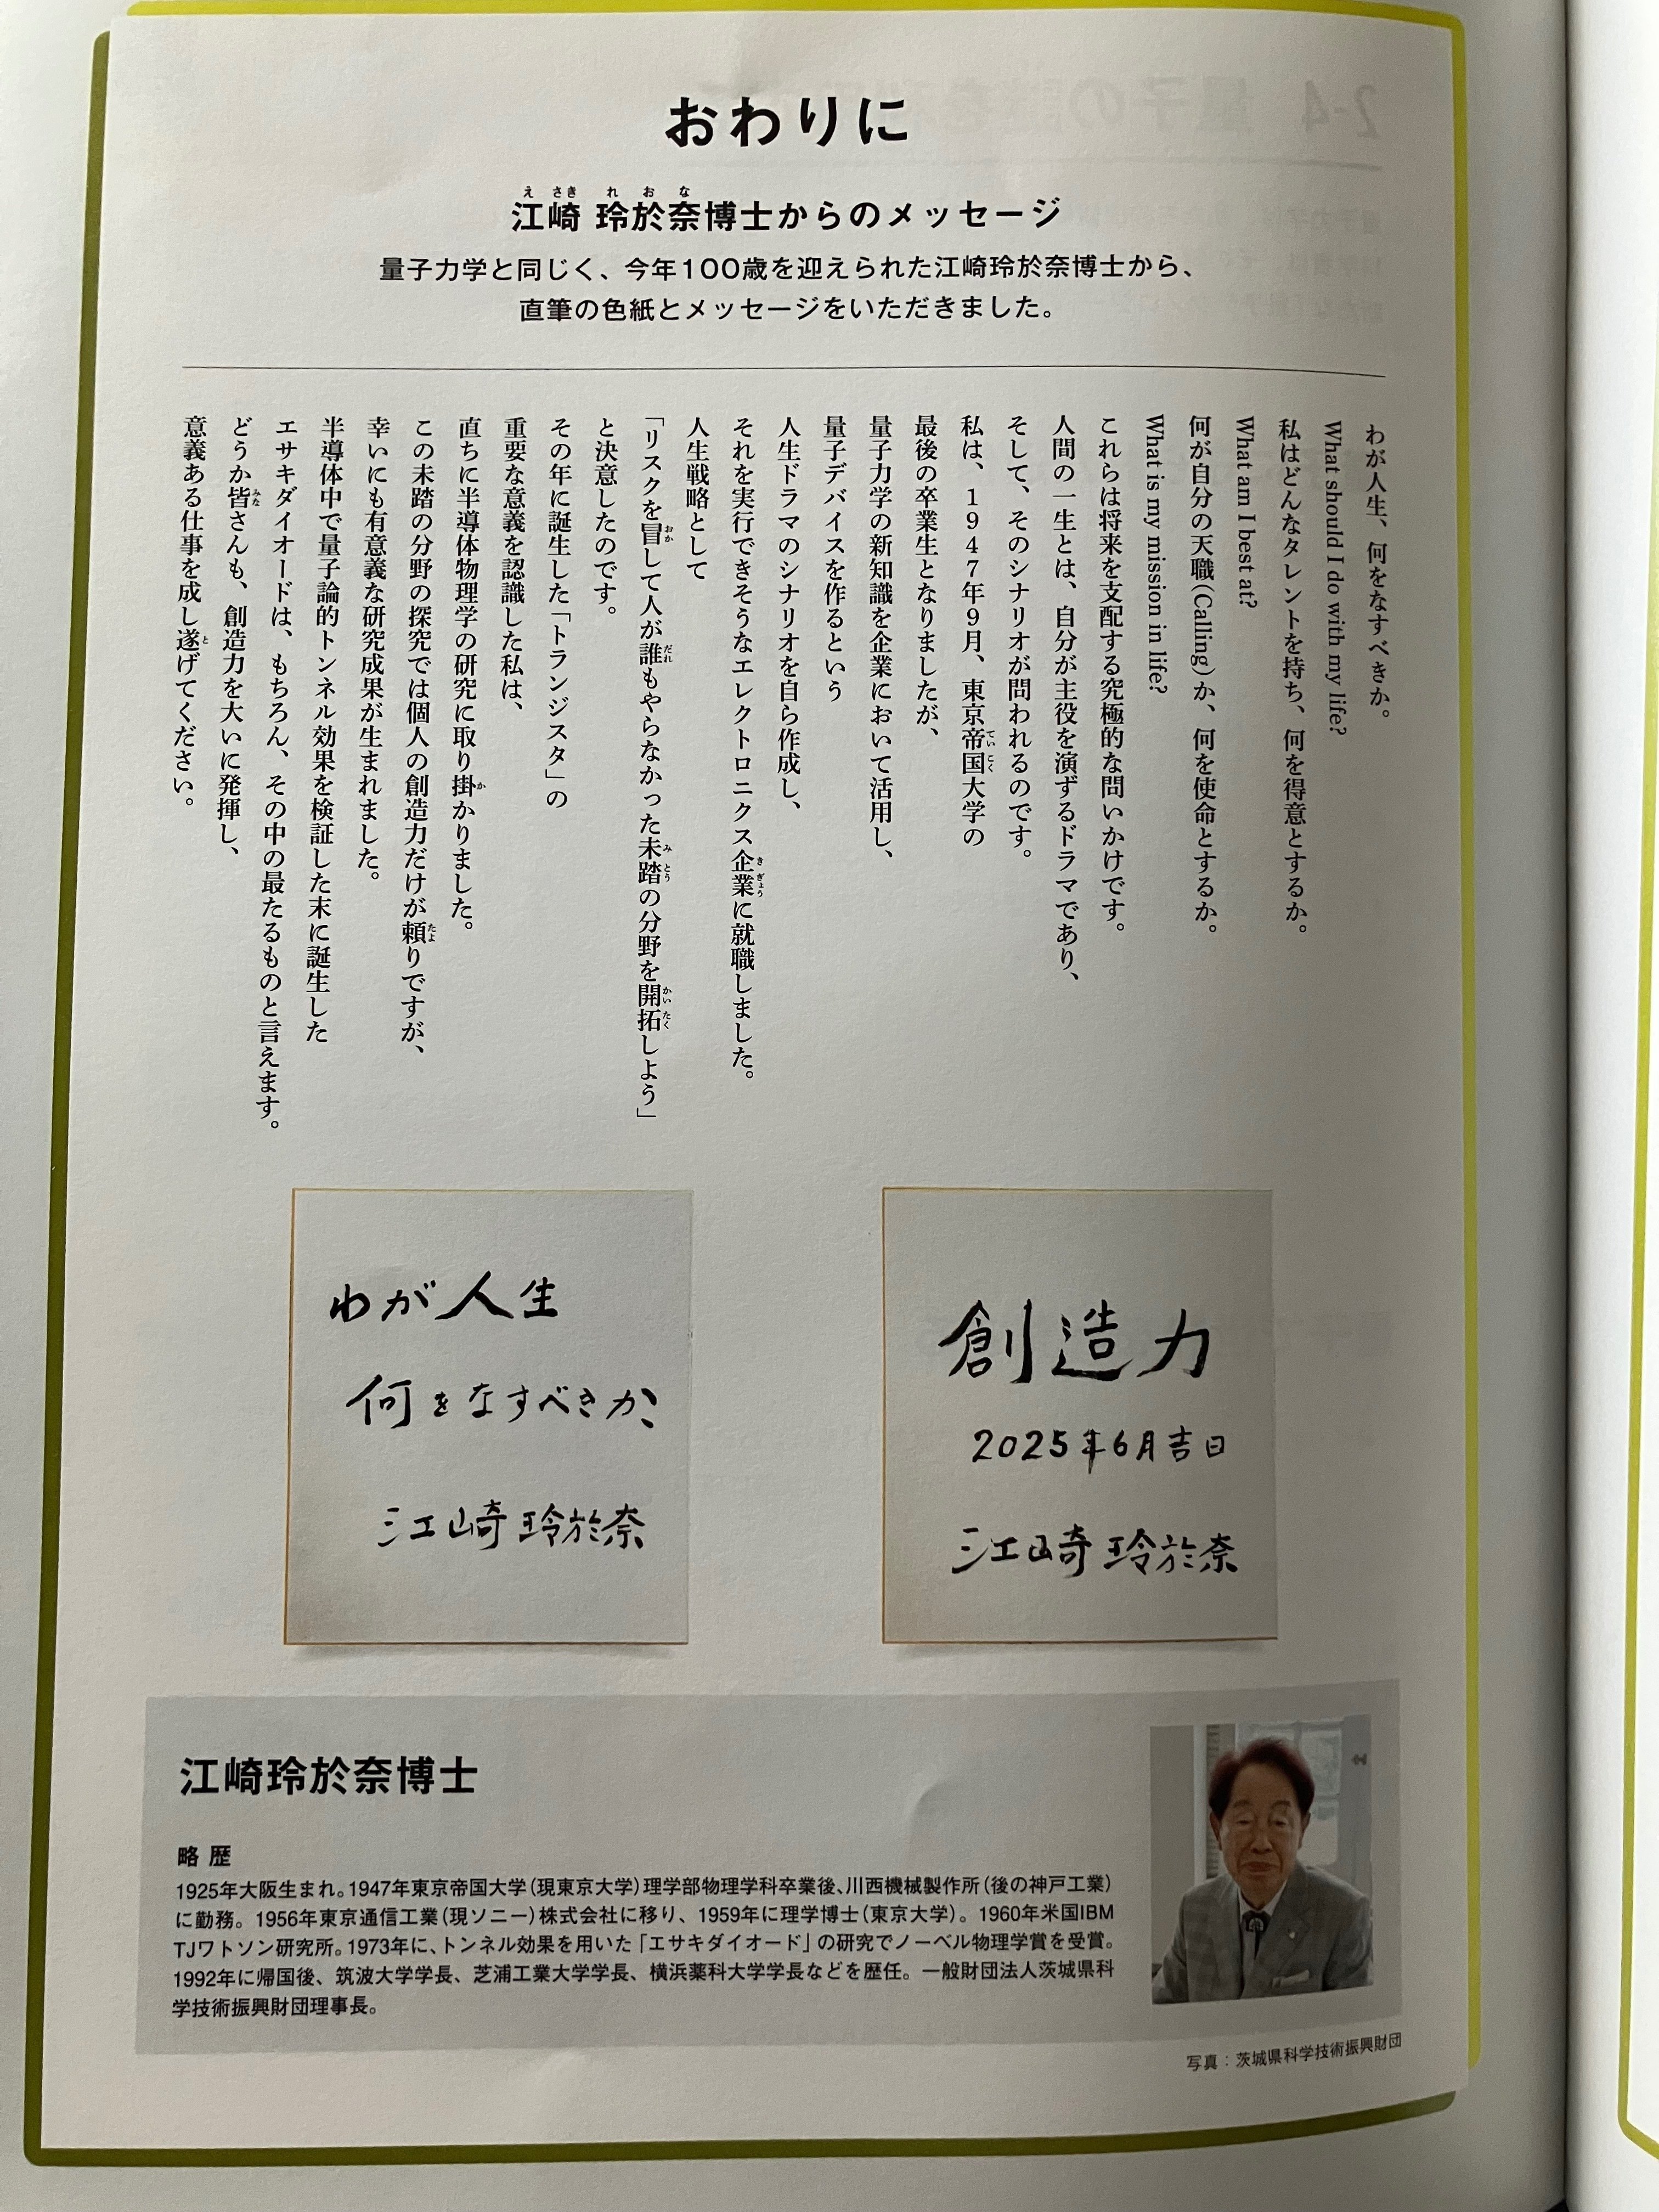 おわりに
江崎 玲於奈博士からのメッセージ
量子力学と同じく、今年100歳を迎えられた江崎玲於奈博士から、
直筆の色紙とメッセージをいただきました。
わが人生、何をなすべきか。
What should I do with my life?
私はどんなタレントを持ち、何を得意とするか。
What am I best at?
何が自分の天職(Calling)か、何を使命とするか。
What is my mission in life?
これらは将来を支配する究極的な問いかけです。
人間の一生とは、自分が主役を演ずるドラマであり、
そして、そのシナリオが問われるのです。
私は、1947年9月、東京帝国大学の
最後の卒業生となりましたが、
量子力学の新知識を企業において活用し、
量子デバイスを作るという
人生ドラマのシナリオを自ら作成し、
それを実行できそうなエレクトロニクス企業に就職しました。
人生戦略として
「リスクを冒して人が誰もやらなかった未踏の分野を開拓しよう」
と決意したのです。
その年に誕生した「トランジスタ」の
重要な意義を認識した私は、
直ちに半導体物理学の研究に取り掛かりました。
この未踏の分野の探究では個人の創造力だけが頼りですが、
幸いにも有意義な研究成果が生まれました。
半導体中で量子論的トンネル効果を検証した末に誕生した
エサキダイオードは、もちろん、その中の最たるものと言えます。
どうか皆さんも、創造力を大いに発揮し、
意義ある仕事を成し遂げてください。
わが人生
何をなすべきか、
江崎玲於奈
創造力
2025年6月吉日
江崎玲於奈
江崎玲於奈博士
略歴
1925年大阪生まれ。1947年東京帝国大学(現東京大学)理学部物理学科卒業後、川西機械製作所(後の神戸工業)
に勤務。1956年東京通信工業(現ソニー)株式会社に移り、1959年に理学博士(東京大学)。1960年米国IBM
TJワトソン研究所。1973年に、トンネル効果を用いた「エサキダイオード」の研究でノーベル物理学賞を受賞。
1992年に帰国後、筑波大学学長、芝浦工業大学学長、横浜薬科大学学長などを歴任。一般財団法人茨城県科
学技術振興財団理事長。
写真：茨城県科学技術振興財団